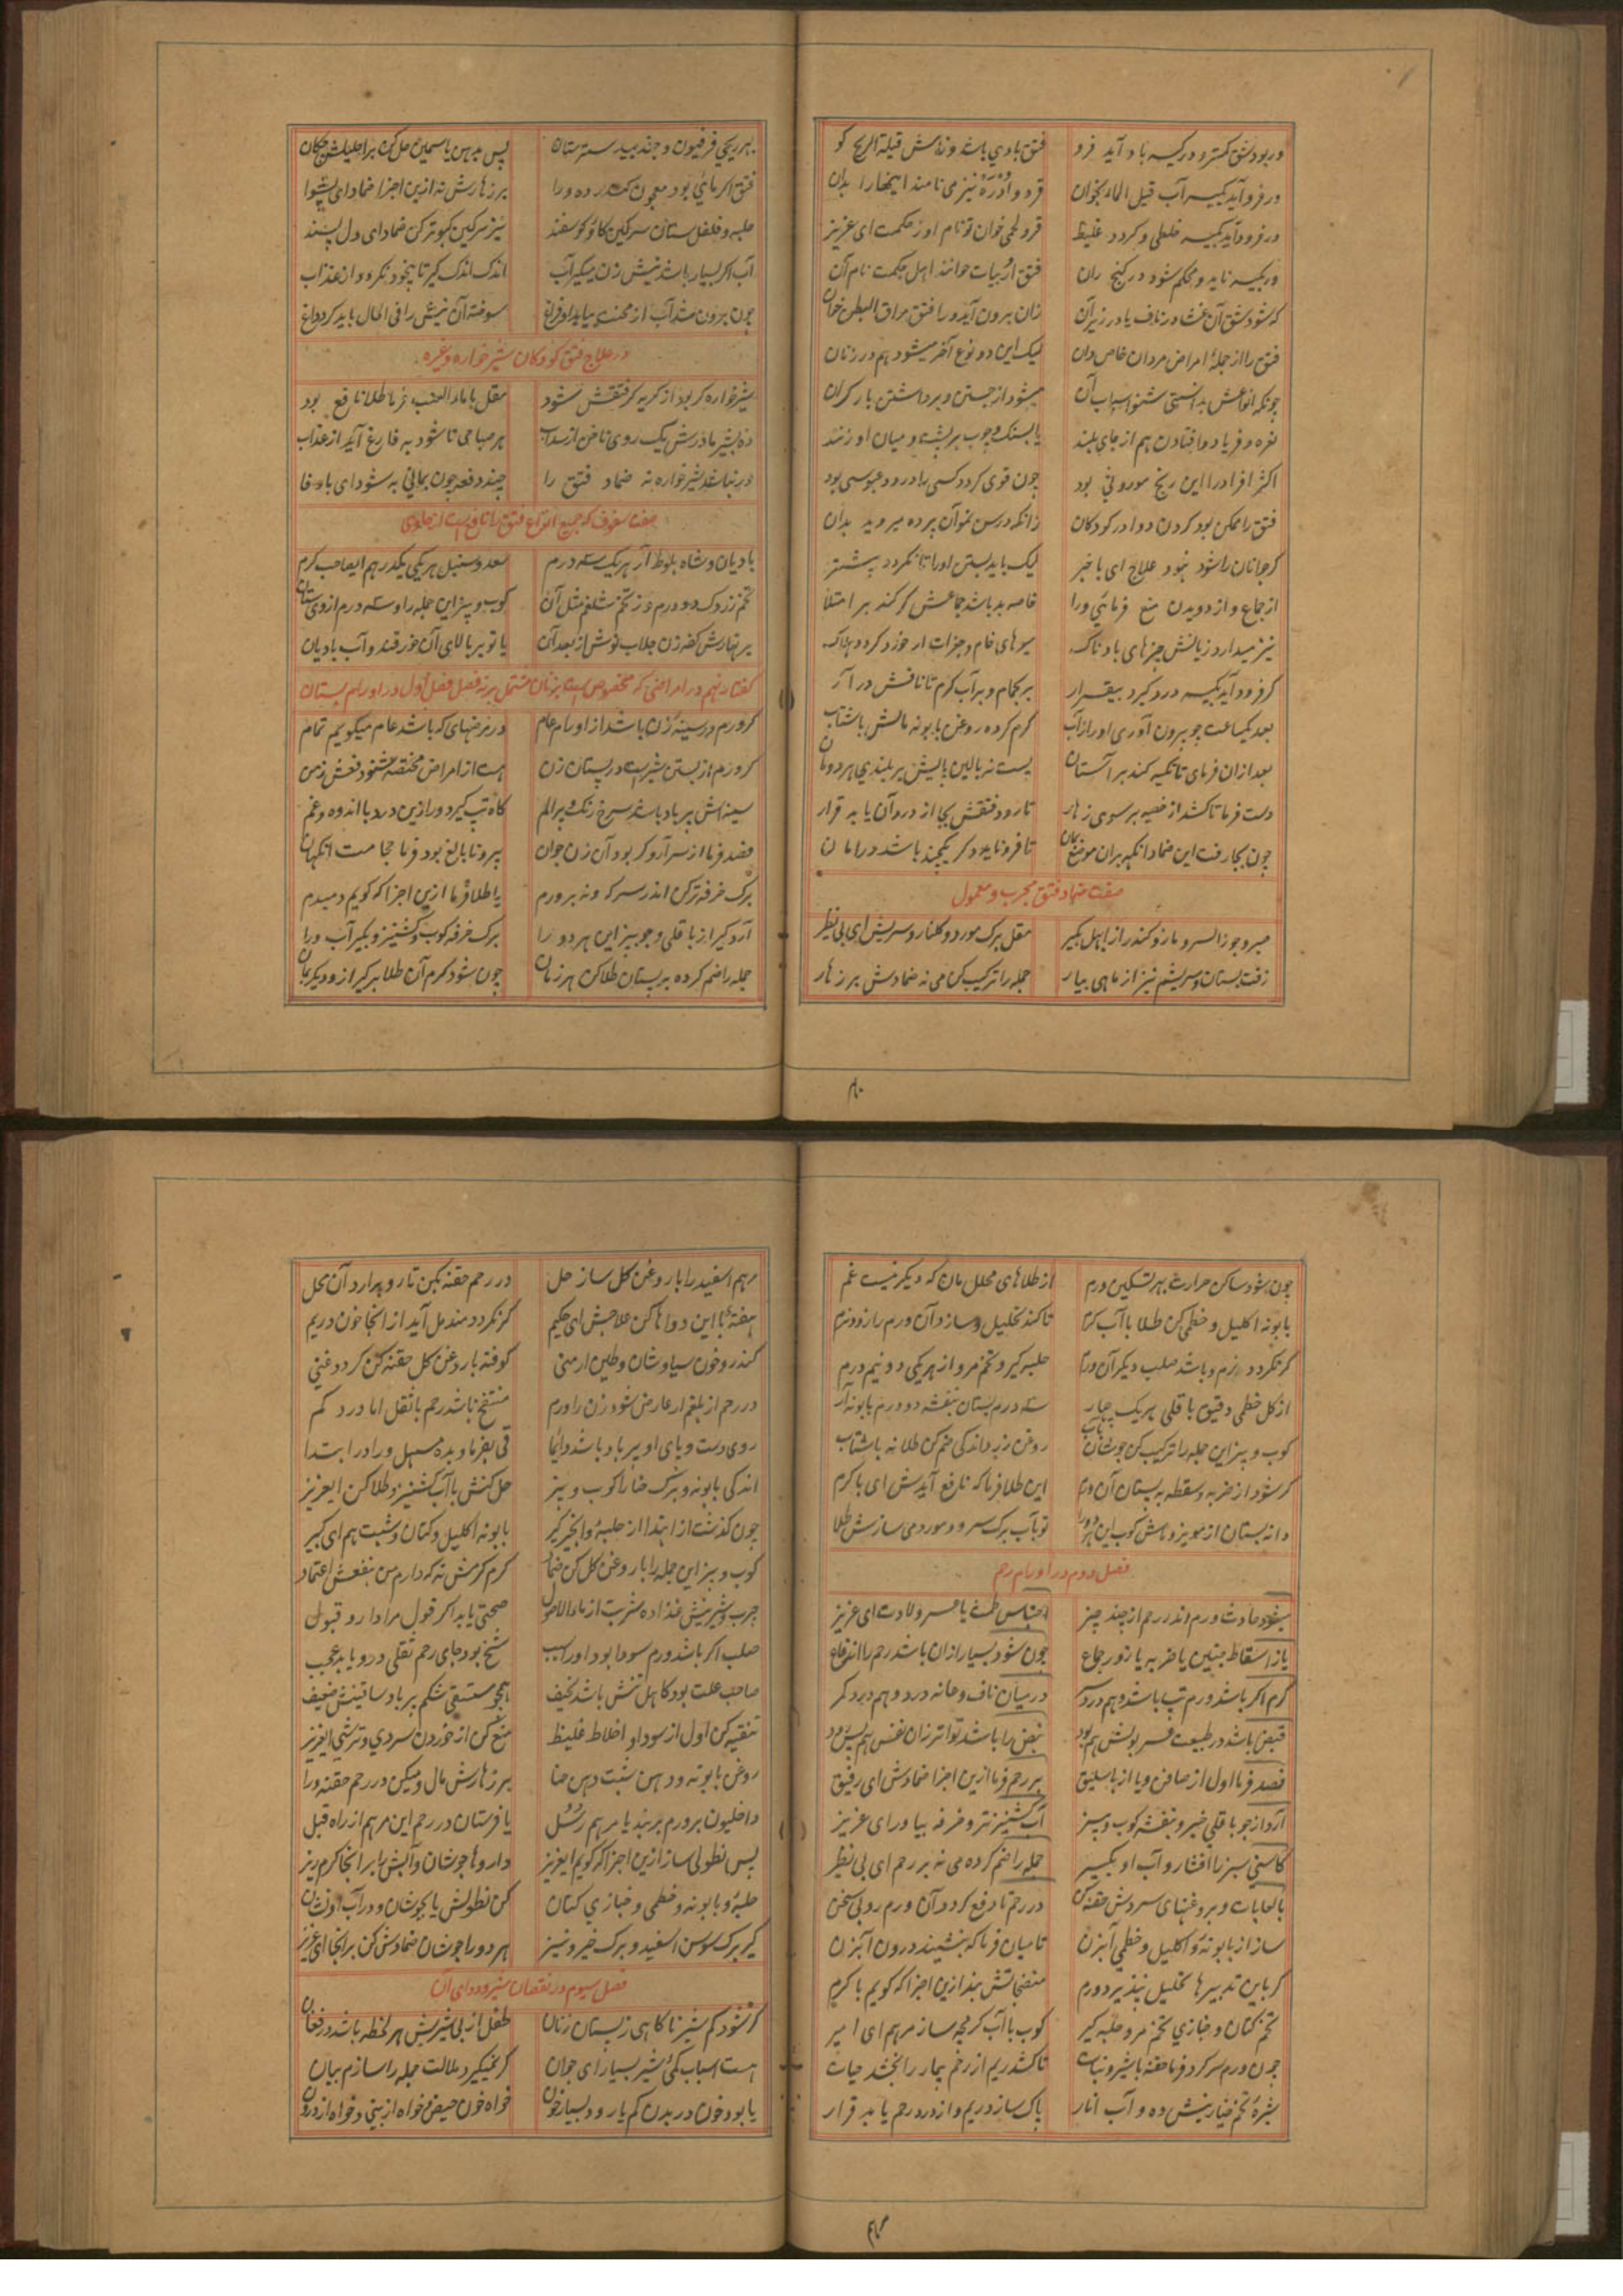 در بود شق کمتر و در کیسه باد آید فرو فتق بادی باشد و نامش قیلة الریح گو
ور فرو آید بکیسه آب قیل الماء بخوان قرو و ادره نیز می نامند اینجا را بدان
ور فرود آید بکیسه خلطی و گردد غلیظ قرو لحمی خوان تو نام او ز حکمت ای عزیز
ور بکیسه ناید و محکم شود در کنج ران فتق اربیات خوانند اهل حکمت نام آن
که شود شق آن غشا در ناف یا در زیر آن زان برون آید ورا فتق مراق البطن خوان
فتق را از جملهٔ امراض مردان خاص دان لیک این دو نوع آخر میشود هم در زنان
چونکه انواعش بدانستی شنو اسباب آن میشود از جستن و برداشتن بار گران
نعره و فریاد و افتادن هم از جای بلند یا بسنگ و چوب بر پشت و میان او زنند
اکثر افراد را این رنج موروثی بود چون قوی گردد کسی را درد و عبوسی بود
فتق را ممکن بود کردن دوا در کودکان زانکه در سن نمو آن پرده میروید بدان
گر جوانان را شود نبود علاج ای با خبر لیک باید بستن او را تا نگردد بیشتر
از جماع و از دویدن منع فرمائی ورا خاصه بد باشد جماعش گر کند بر امتلا
نیز میدارد زیانش چیزهای بادناک میوهای خام و جزات ار خورد گردد هلاک
گر فرود آید بکیسه درد گیرد بیقرار بر بحمام و بر آب گرم تا نافش در آر
بعد یکساعت چو بیرون آوری او را ز آب گرم کرده روغن بابونه مالش باشتاب
بعد ازان فرمای تا تکیه کند بر آستان پست نه بالین بالیش بر بلندی هر دو ران
دست فرما تا کشد از خصیه بر سوی زهار تا رود فتقش بجا از درد آن یابد قرار
چون بجا رفت این ضماد آنگه بران موضع بمان تا فرو ناید و گر یکچند باشد در امان
صفت ضماد فتق مجرب و معمول
صبر و جوز السرو و مازو کندر از ابهل بگیر مقل برگ مورد و گلنار و سریش ای بی نظیر
زفت بستان و سریشم نیز از ماهی بیار جمله را ترکیب کن می نه ضمادش بر زهار
بهر ریحی فرفیون و جند بیدستر ستان پس بدهن یاسمین حل کن بر احلیلش چکان
فتق اگر مائی بود معجون کندر ده ورا بر زهارش نه ازین اجزا ضماد ای پیشوا
حلبه و فلفل ستان سرگین گاو گوسفند نیز سرگین کبوتر کن ضماد ای دل پسند
آب اگر بسیار باشد نیش زن میگیر آب اندک اندک گیر تا بیخود نگردد از عذاب
چون برون شد آب از محنت بیابد او فراغ سوخته آن نیش را فی الحال باید کرد داغ
در علاج فتق کودکان شیر خواره و غیره
شیرخواره گر بود از گریه گر فتقش شود مقل با ماء العنب فرما طلا نافع بود
ده بشیر مادرش یک روی ناخن از سداب هر صباحی تا شود به فارغ آید از عذاب
ور نباشد شیرخواره نه ضماد فتق را چند دفعه چون بمانی به شود ای با وفا
صفت سفوف که جمیع انواع فتق را نافع است از حاوی
بادیان و شاه بلوط آر هر یک سه درم سعد و سنبل هر یکی یکدرهم ایصاحب کرم
تخم زردک دو درم وز تخم شلغم مثل آن کوب و بیز این جمله را و سه درم از وی ستان
بر نهارش کفه زن جلاب نوش از بعد آن یا تو بر بالای آن خور قند و آب بادیان
گفتار نهم در امراضی که مخصوص است بزنان مشتمل بر نه فصل فصل اول در اورام پستان
گر ورم در سینهٔ زن باشد از اورام عام در مرضهای که باشد عام میگویم تمام
گر ورم از بستن شیر است در پستان زن هست از امراض مختصه شنو دفعش ز من
سینه اش پر باد باشد سرخ رنگ و پر الم گاه تب گیرد ورا زین درد با اندوه و غم
فصد فرما از سر آرو گر بود آن زن جوان پیر و نابالغ بود فرما حجامت آنگهان
برگ خرفه تر کن اندر سرکه و نه بر ورم یا طلا فرما ازین اجزا که گویم دمبدم
آرد گیر از باقلی و جو بیز این هر دو را برگ خرفه کوب و گشنیز و بگیر آب ورا
جمله را ضم کرده بر پستان طلا کن هر زمان چون شود گرم آن طلا برگیر از و دیگر بمان
۳۰
چون شود ساکن حرارت بهر تسکین ورم از طلاهای محلل مان که دیگر نیست غم
بابونه اکلیل و خطمی کن طلا با آب کرنب تا کند تحلیل و سازد آن ورم را زود نرم
گر نگردد نرم و باشد صلب دیگر آن ورم حلبه گیر و تخم مرو از هر یکی دو نیم درم
از گل خطمی دقیق باقلی هر یک چهار سه درم بستان بنفشه دو درم بابونه آر
کوب و بیز این جمله را ترکیب کن چوشان بآب روغن زرد اندکی ضم کن طلا نه باشتاب
گر شود از ضربه و سقطه به پستان آن ورم این طلا فرما که نافع آیدش ای با کرم
دانه بستان از مویز و ماش کوب این هر دو را تو بآب برگ سرو و مورد می سازش طلا
فصل دوم در اورام رحم
میشود حادث ورم اندر رحم از چند چیز احتباس طمث یا عسر ولادت ای عزیز
یا ز اسقاط جنین یا ضربه یا زور جماع چون شود بسیار ازان باشد رحم را انتفاع
گرم اگر باشد ورم تب باشد و هم درد سر در میان ناف و عانه درد و هم درد کمر
قبض باشد در طبیعت عسر بولش هم بود نبض را باشد تواتر زان نفس هم پس رود
فصد فرما اول از صافن و یا از باسلیق بر رحم فرما ازین اجزا ضمادش ای رفیق
آرد از جو باقلی خیرو بنفشه کوب و بیز آب گشنیز تر و خرفه بیاور ای عزیز
کاسنی سبز را افشار و آب او بگیر جمله را ضم کرده می نه بر رحم ای بی نظیر
با لعابات و بروغنهای سردش حقنه کن در رحم تا دفع گردد آن ورم رو بی سخن
ساز از بابونه و اکلیل و خطمی آبزن تا میان فرما که بنشیند درون آبزن
گر باین تدبیرها تحلیل نپذیرد ورم منضجاتش بند ازین اجزا که گویم با کرم
تخم کتان و خبازی تخم مرو و حلبه گیر کوب با آب کرنبه ساز مرهم ای امیر
چون ورم سر کرد فرما حقنه با شیر و نبات تا کشد ریم از رحم بیمار را بخشد حیات
شیرهٔ تخم خیارینش ده و آب انار پاک سازد ریم و از درد رحم یابد قرار
مرهم اسفید را با روغن گل ساز حل در رحم حقنه بکن تا رو برارد آن محل
هفتهٔ با این دواها کن علاجش ای حکیم گر نگردد مندمل آید از آنجا خون و ریم
کندر و خون سیاوشان و طین ارمنی کوفته با روغن گل حقنه کن گردد غنی
در رحم از بلغم ار عارض شود زن را ورم منتفخ باشد رحم با ثقل اما درد کم
روی دست و پای او پر باد باشد دایما قی بفرما و بده مسهل ورا در ابتدا
اندکی بابونه و برگ حنا را کوب و بیز حل کنش با آب گشنیز و طلا کن ایعزیز
چون گذشت از ابتدا از حلبه و انجیر گیر بابونه اکلیل و کتان و شبت هم ای کبیر
کوب و بیز این جمله را با روغن گل کن ضماد گرم گرمش نه که دارم من بنفعش اعتماد
چرب و شیرینش غذا ده شربت از ماء الاصول صحتی یابد اگر قول مرا دارو قبول
صلب اگر باشد ورم سودا بود او را سبب شخ بود جای رحم ثقلی و درد یابد عجب
صاحب علت بود کاهل تنش باشد نحیف همچو مستسقی شکم پر باد و ساقینش ضعیف
تنقیه کن اول از سودا و اخلاط غلیظ منع کن از خوردن سردی و ترشی ایعزیز
روغن بابونه و دهن شبت دهن حنا بر زهارش مال و میکن در رحم حقنه ورا
داخلیون بر ورم بر بند یا مرهم رسل یا فرستان در رحم این مرهم از راه قبل
پس نطولی ساز ازین اجزا که گویم ایعزیز داروها جوشان و آبش را بر آنجا گرم ریز
حلبه و بابونه و خطمی و خبازی کتان کن نطولش یا بجوشان و در آب او نشان
گیر برگ سوسن اسفید و برگ خیر و نیز هر دو را جوشان ضمادش کن بر آنجا ای عزیز
فصل سیوم در نقصان شیر و دوای آن
گر شود کم شیر ناگاهی ز پستان زنان طفل از بی شیریش هر لحظه باشد در فغان
هست اسباب کمی شیر بسیار ای جوان گر نگیرد ملالت جمله را سازم بیان
یا بود خون در بدن کم یا رود بسیار خون خواه خون حیض و خواه از بینی و خواه از درون